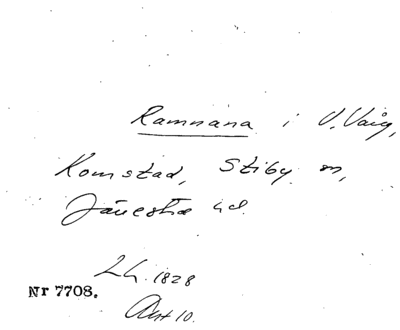 Ramnana i V. Vång,
Komstad, Stiby sn,
Järrestad hd.
LL. 1828
Nr 7708.
Akt 10.